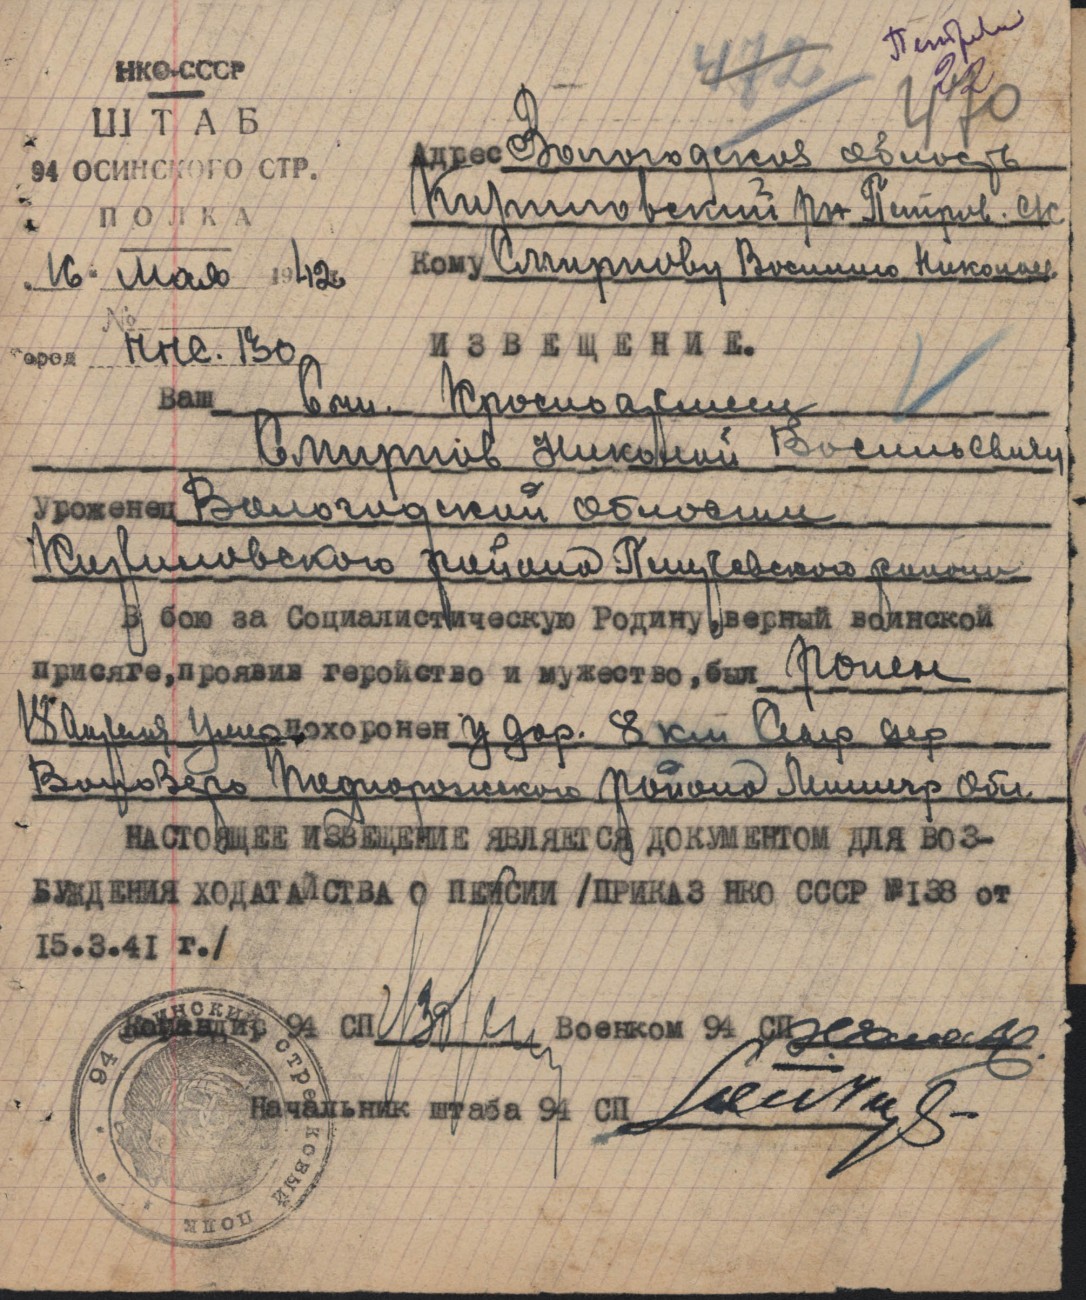 Петров
22
472
470
НКО-СССР
ШТАБ
94 ОСИНСКОГО СТР.
ПОЛКА
"16" мая 1942
№
город ппс. 130
Адрес Вологодская область
Кирилловский рн Петров. с/с
Кому Смирнову Василию Николаев.
ИЗВЕЩЕНИЕ.
Ваш Сын. Красноармеец
Смирнов Николай Васильевич
Уроженец Вологодский области
Кирилловского района
В бою за Социалистическую Родину, верный воинской
присяге, проявив геройство и мужество, был ранен
18 Апреля Умер похоронен у дор. 8 км Севр дер
Возовера Подпорожского района Ленингр Обл.
НАСТОЯЩЕЕ ИЗВЕЩЕНИЕ ЯВЛЯЕТСЯ ДОКУМЕНТОМ ДЛЯ ВОЗ-
БУЖДЕНИЯ ХОДАТАЙСТВА О ПЕНСИИ /ПРИКАЗ НКО СССР №138 от
15.3.41 г./
Командир 94 СП Военком 94 СП
Начальник штаба 94 СП
94 ОСИНСКИЙ СТРЕЛКОВЫЙ ПОЛК